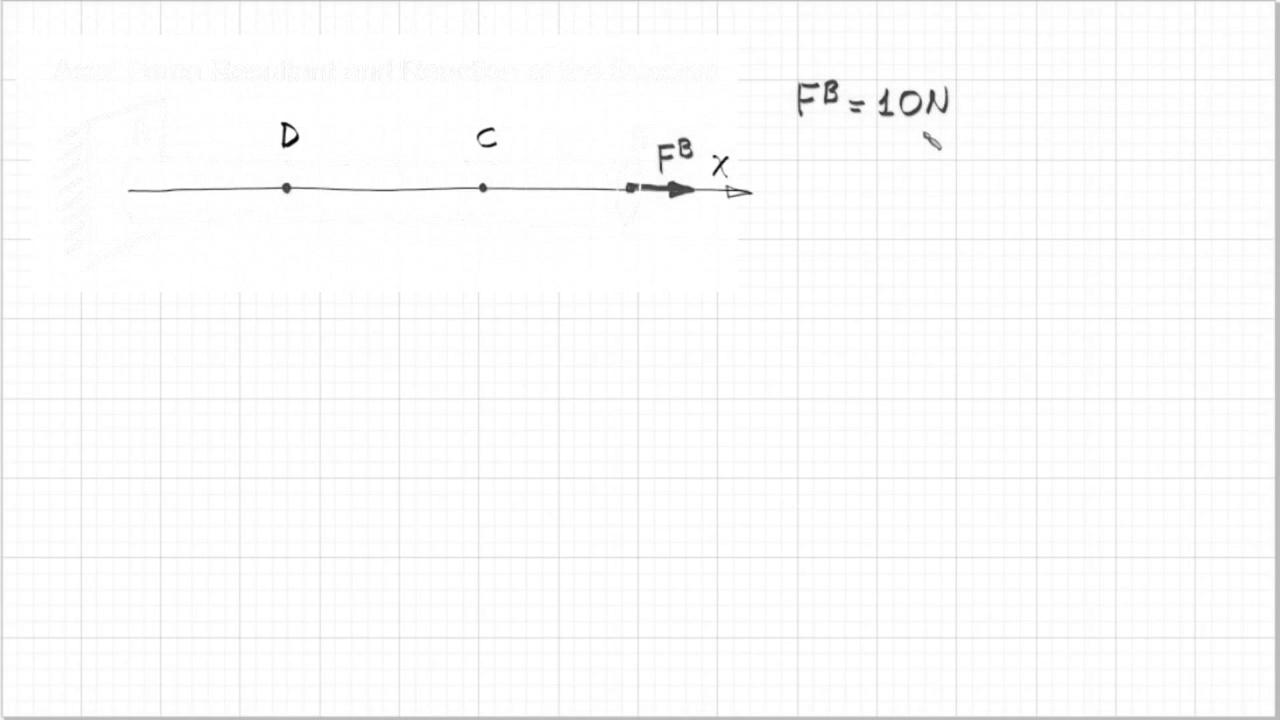 Axial Force Resultant and Reaction at the Support
F^B = 10N
D C
F^B x